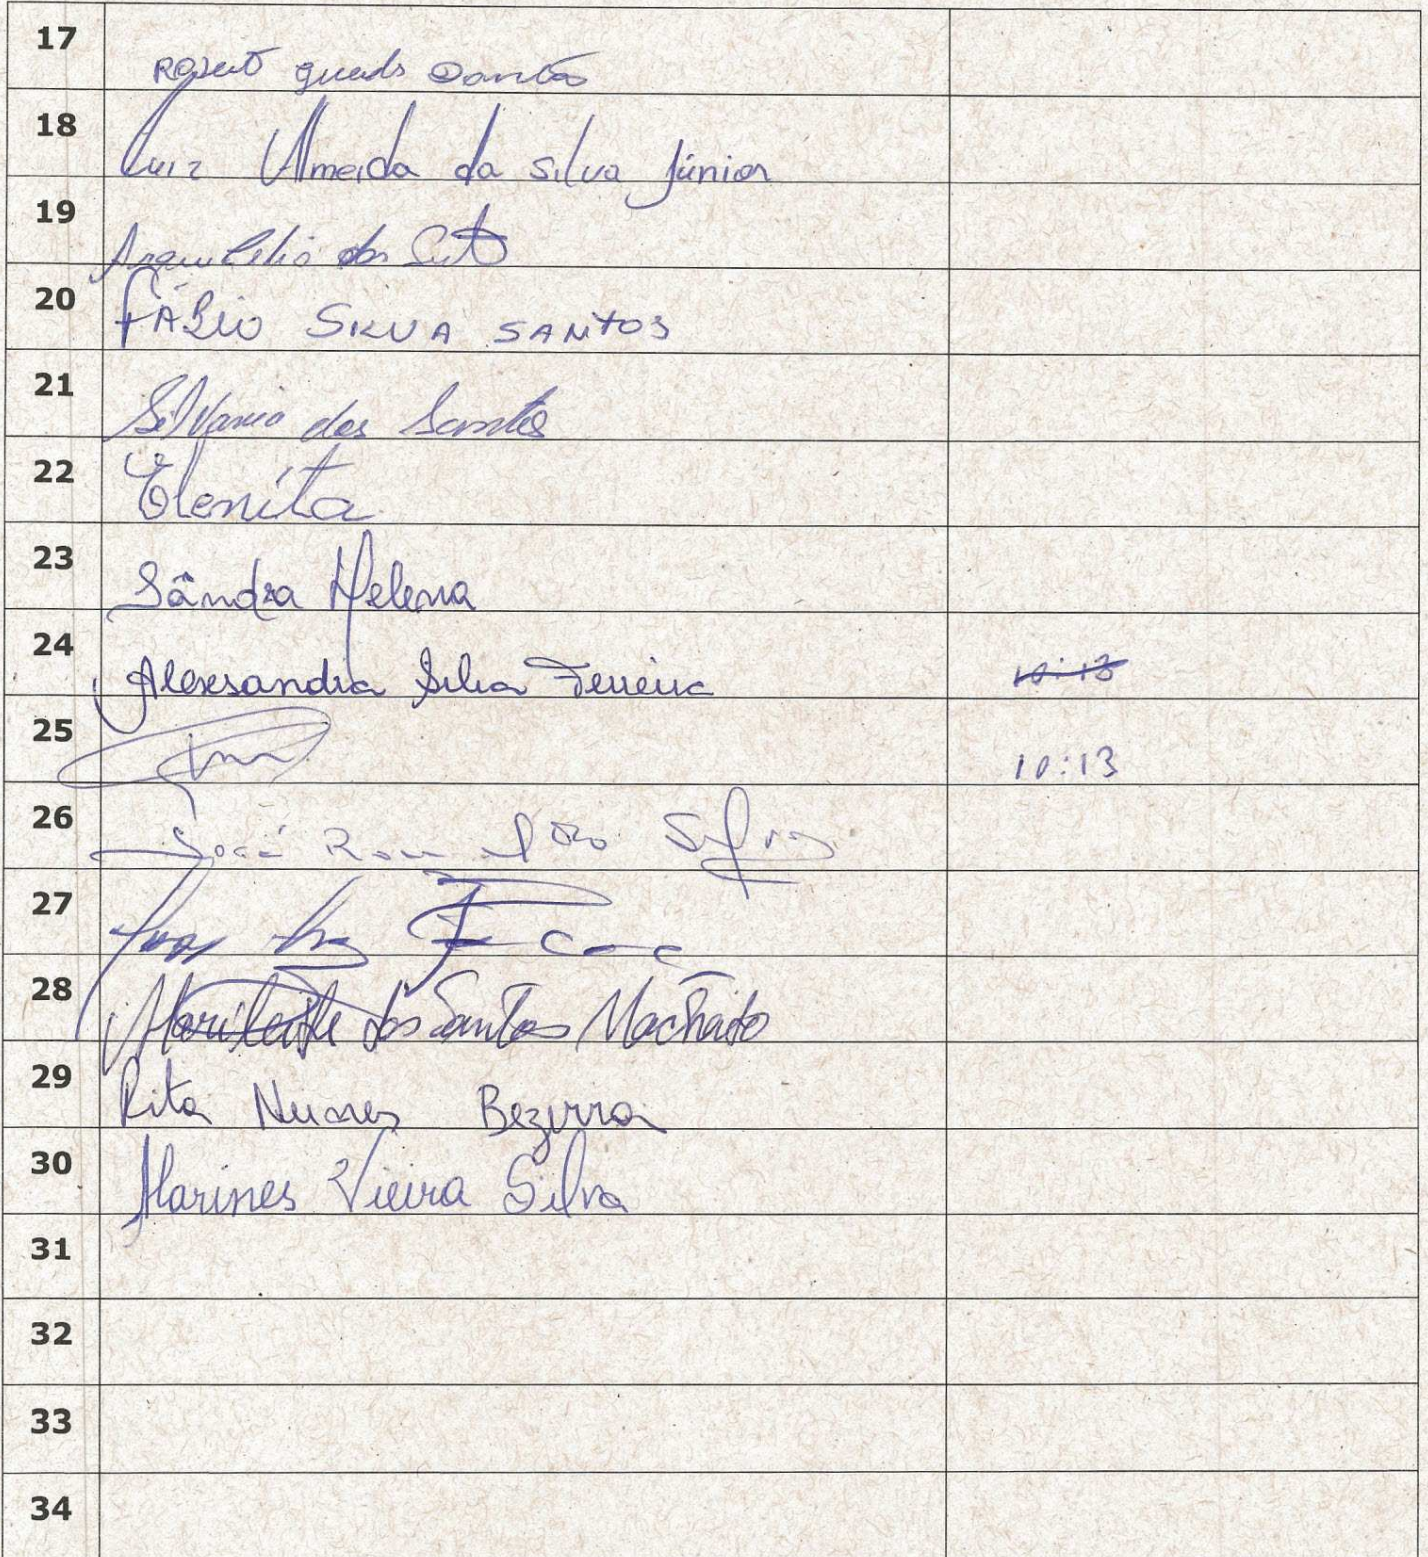 17
18 Luiz Almeida da Silva Júnior
19 dos
20 FÁBIO SILVA SANTOS
21 Silvanio dos Santos
22 Elenita
23 Sândra Helena
24 Alexsandra Silva Ferreira 10:13
25 10:13
26 José Silva
27
28 Marileide dos Santos Machado
29 Rita Nunes Bezerra
30 Marines Vieira Silva
31
32
33
34